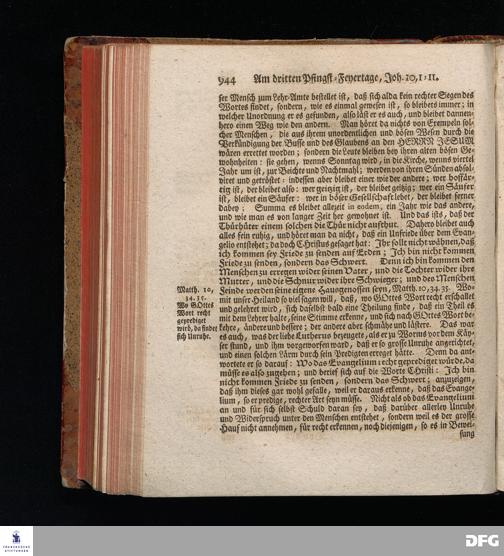 944 Am dritten Pfingst-Feyertage, Joh. 10, 1-11.
ser Mensch zum Lehr-Amte bestellet ist, daß sich alda kein rechter Segen des
Wortes findet, sondern, wie es einmal gewesen ist, so bleibets immer; in
welcher Unordnung er es gefunden, also läst er es auch, und bleibet dannen-
hero einen Weg wie den andern. Man höret da nichts von Exempeln sol-
cher Menschen, die aus ihrem unordentlichen und bösen Wesen durch die
Verkündigung der Busse und des Glaubens an den HERRN JESUM
wären errettet worden; sondern die Leute bleiben bey ihren alten bösen Ge-
wohnheiten: sie gehen, wenns Sonntag wird, in die Kirche, wenns viertel
Jahr um ist, zur Beichte und Nachtmahl; werden von ihren Sünden absol-
viret und getröstet: indessen aber bleibet einer wie der andere; wer hoffär-
tig ist, der bleibet also: wer geitzig ist, der bleibet geitzig: wer ein Säufer
ist, bleibet ein Säufer: wer in böser Gesellschaft lebet, der bleibet ferner
dabey; Summa es bleibet allezeit in eodem, ein Jahr wie das andere,
und wie man es von langer Zeit her gewohnet ist. Und das ists, daß der
Thürhüter einem solchen die Thür nicht aufthut. Dahero bleibet auch
alles fein ruhig, und höret man da nicht, daß ein Unfriede über dem Evan-
gelio entstehet; da doch Christus gesaget hat: Ihr sollt nicht wähnen, daß
ich kommen sey Friede zu senden auf Erden; Ich bin nicht kommen
Friede zu senden, sondern das Schwert. Denn ich bin kommen den
Menschen zu erregen wider seinen Vater, und die Tochter wider ihre
Mutter, und die Schnur wider ihre Schwieger; und des Menschen
Matth. 10,
34. 35.
Wo GOttes
Wort recht
geprediget
wird, da findet
sich Unruhe.
Feinde werden seine eigene Hausgenossen seyn, Matth. 10, 34. 35. Wo-
mit unser Heiland so viel sagen will, daß, wo GOttes Wort recht erschallet
und gelehret wird, sich daselbst bald eine Theilung finde, daß ein Theil es
mit dem Lehrer halte, seine Stimme erkenne, und sich nach GOttes Wort be-
kehre, ändere und bessere; der andere aber schmähe und lästere. Das war
es auch, was der liebe Lutherus bezeugete, als er zu Worms vor dem Käy-
ser stund, und ihm vorgeworfen ward, daß er so grosse Unruhe angerichtet,
und einen solchen Lärm durch sein Predigten erreget hätte. Denn da ant-
wortete er so darauf: Wo das Evangelium recht geprediget würde, da
müsse es also zugehen; und berief sich auf die Worte Christi: Ich bin
nicht kommen Friede zu senden, sondern das Schwert; anzuzeigen,
daß ihm dieses gar wohl gefalle, weil er daraus erkenne, daß das Evange-
lium, so er predige, rechter Art seyn müsse. Nicht als ob das Evangelium
an und für sich selbst Schuld daran sey, daß darüber allerley Unruhe
und Widerspruch unter den Menschen entstehet, sondern weil es der grosse
Hauf nicht annehmen, für recht erkennen, noch diejenigen, so es in Bewei-
sung
FRANCKESCHE
STIFTUNGEN
DFG